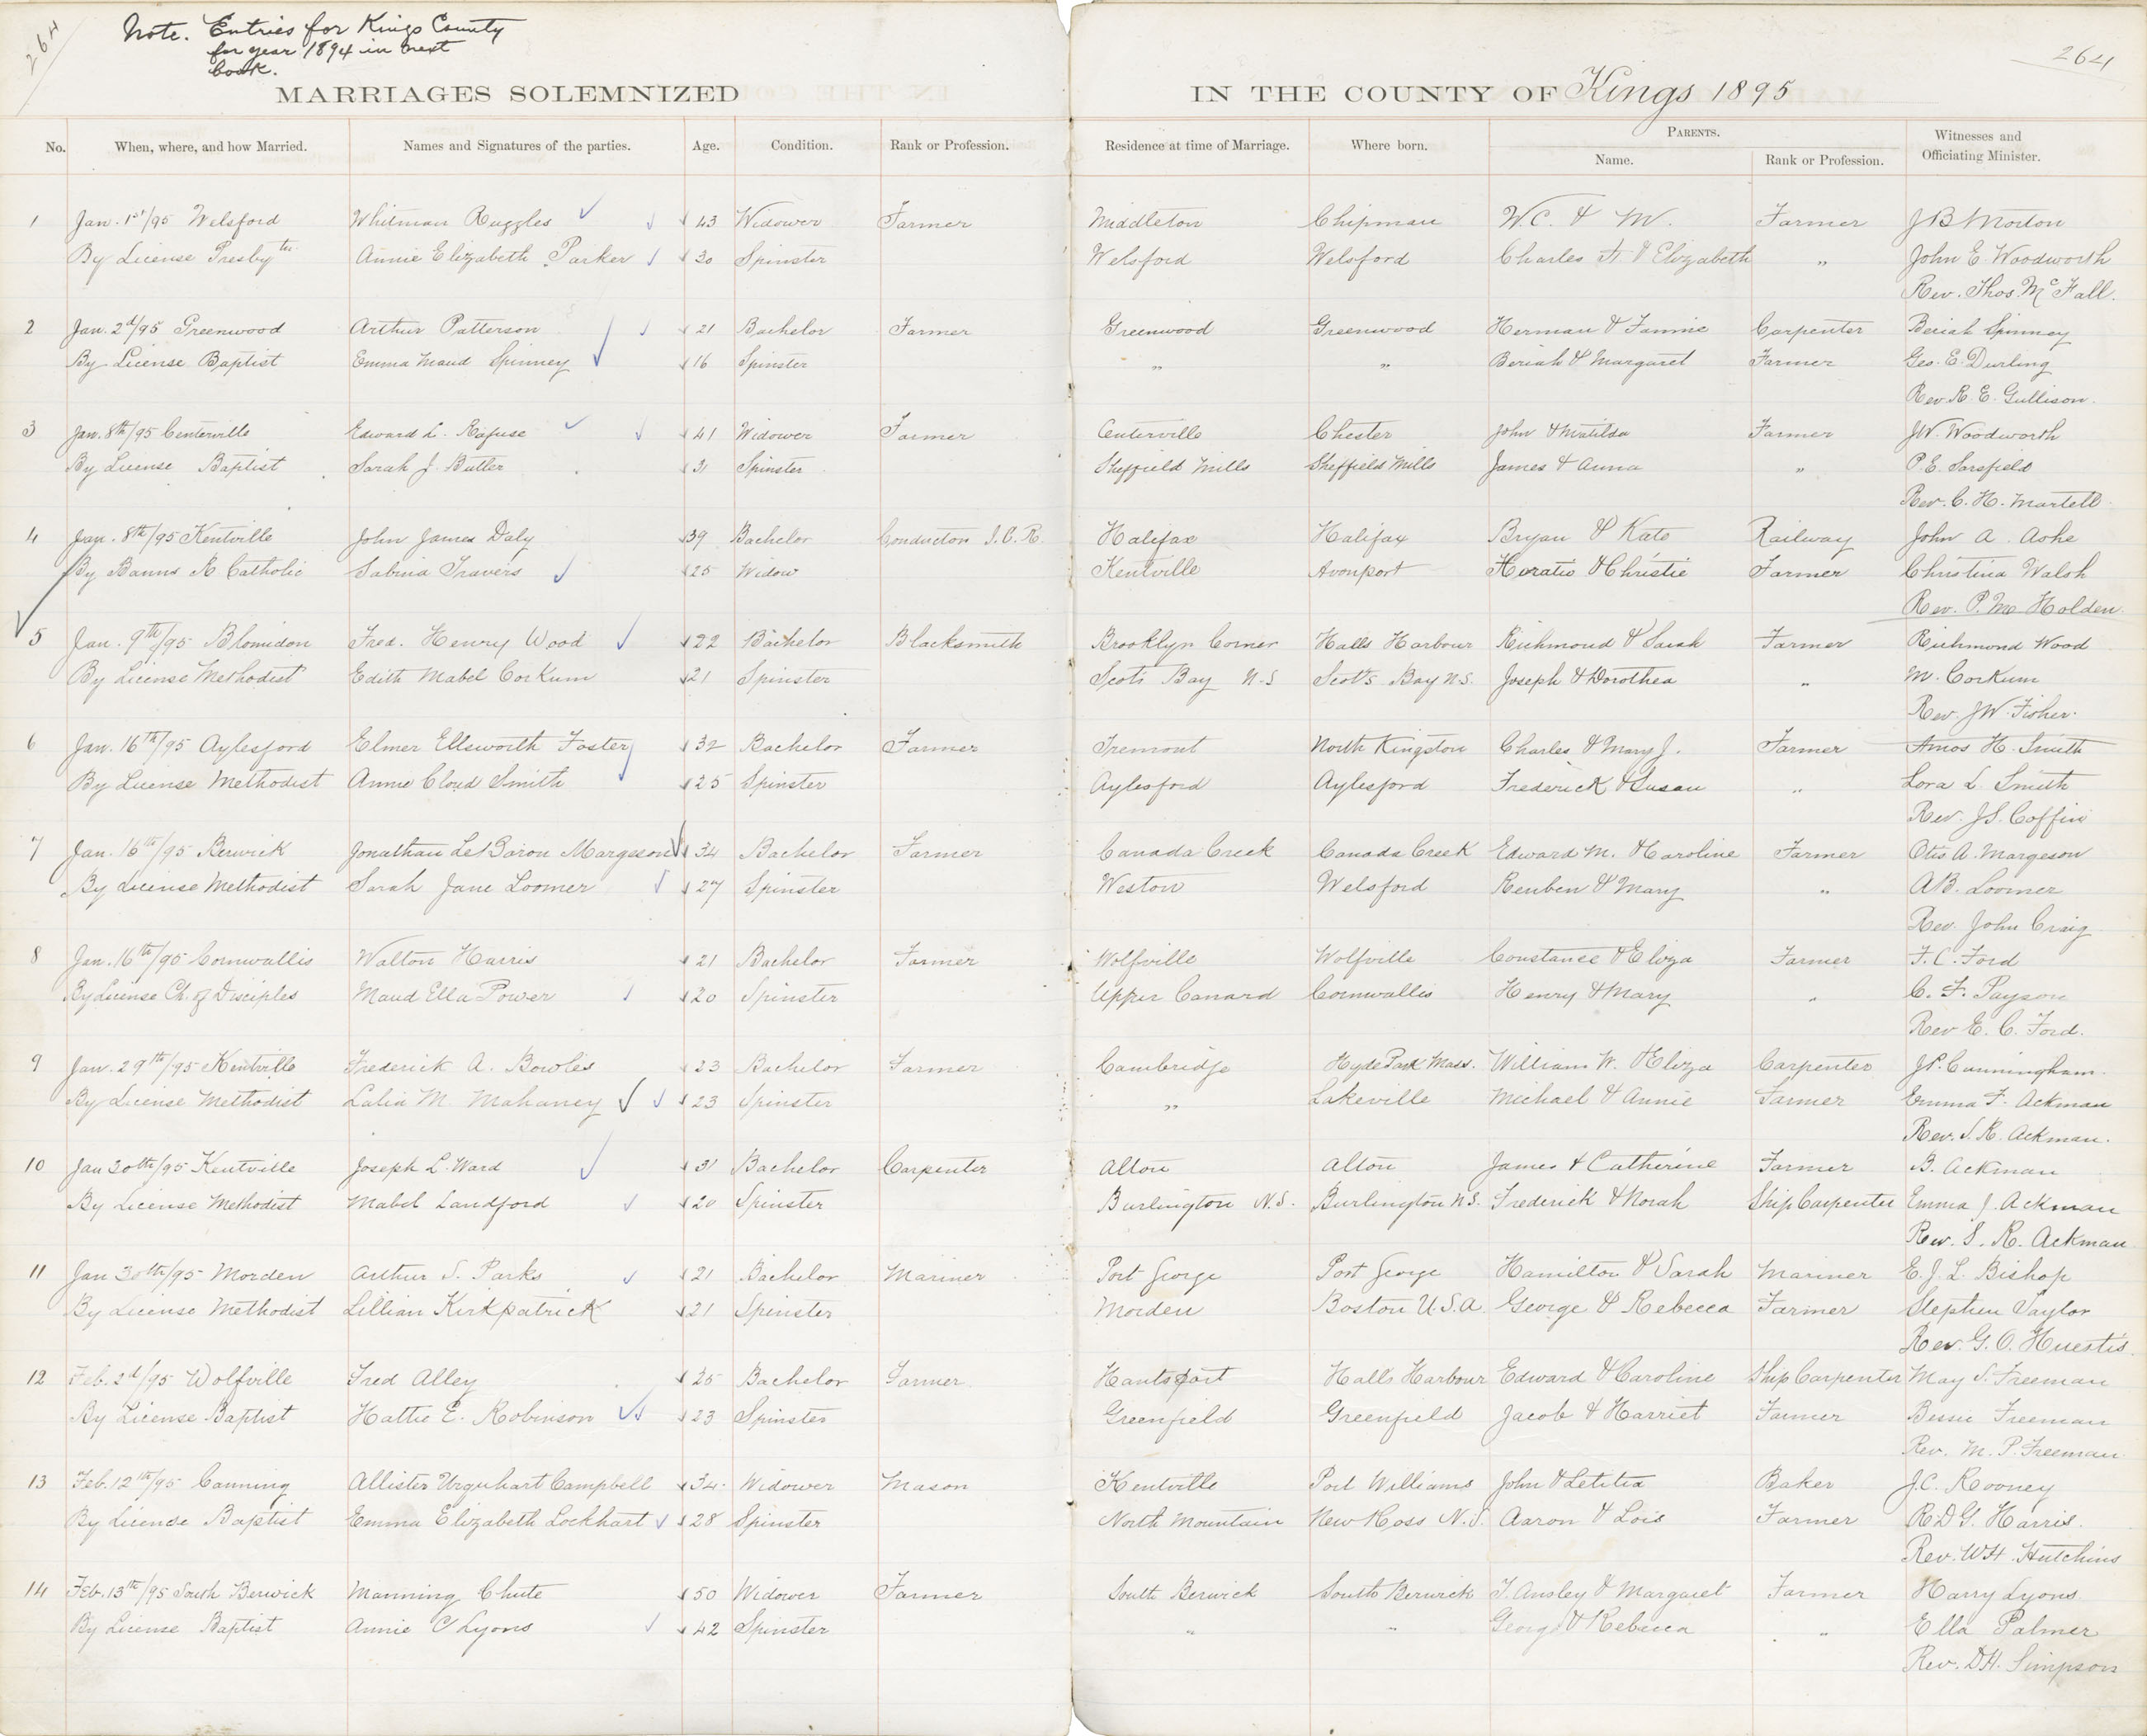 264
Note. Entries for Kings County
for year 1894 in next
book.
264
MARRIAGES SOLEMNIZED IN THE COUNTY OF Kings 1895
No. When, where, and how Married. Names and Signatures of the parties. Age. Condition. Rank or Profession. Residence at time of Marriage. Where born. PARENTS. Name. Rank or Profession. Witnesses and Officiating Minister.
1 Jan. 1st/95 Welsford Whitman Ruggles 43 Widower Farmer Middleton Chipman W. C. & M. Farmer J B Morton
By License Presbytn Annie Elizabeth Parker 30 Spinster Welsford Welsford Charles A & Elizabeth „ John E Woodworth
Rev. Thos. McFall.
2 Jan. 2d/95 Greenwood Arthur Patterson 21 Bachelor Farmer Greenwood Greenwood Herman & Fannie Carpenter Beriah Spinney
By License Baptist Emma Maud Spinney 16 Spinster „ „ Beriah & Margaret Farmer Geo. E. Durling
Rev. R. E. Gullison.
3 Jan. 8th/95 Centerville Edward L. Rafuse 41 Widower Farmer Centerville Chester John & Matilda Farmer J.W. Woodworth
By License Baptist Sarah J. Butler 31 Spinster Sheffield Mills Sheffield Mills James & Anna „ P. E. Sarsfield
Rev. C. H. Martell
4 Jan. 8th/95 Kentville John James Daly 39 Bachelor Conductor I. C. R. Halifax Halifax Bryan & Kate Railway John A. Ashe
By Banns R Catholic Sabina Travers 25 Widow Kentville Avonport Horatio & Christie Farmer Christina Walsh
Rev. P. M. Holden
5 Jan. 9th/95 Blomidon Fred. Henry Wood 22 Bachelor Blacksmith Brooklyn Corner Halls Harbour Richmond & Sarah Farmer Richmond Wood
By License Methodist Edith Mabel Corkum 21 Spinster Scots Bay N.S Scots Bay N.S. Joseph & Dorothea „ M. Corkum
Rev. J.W. Fisher.
6 Jan. 16th/95 Aylesford Elmer Ellsworth Foster 32 Bachelor Farmer Tremont North Kingston Charles & Mary J. Farmer Amos H. Smith
By License Methodist Annie Cloud Smith 25 Spinster Aylesford Aylesford Frederick & Susan „ Lora L. Smith
Rev. J.S. Coffin
7 Jan. 16th/95 Berwick Jonathan LeBaron Margeson 34 Bachelor Farmer Canada Creek Canada Creek Edward M. & Caroline Farmer Otis A. Margeson
By License Methodist Sarah Jane Loomer 27 Spinster Weston Welsford Reuben & Mary „ A.B. Loomer
Rev. John Craig
8 Jan. 16th/95 Cornwallis Walton Harris 21 Bachelor Farmer Wolfville Wolfville Constance & Eliza Farmer F. C. Ford
By License Ch. of Disciples Maud Ella Power 20 Spinster Upper Canard Cornwallis Henry & Mary „ C. F. Payson
Rev E. C. Ford.
9 Jan. 29th/95 Kentville Frederick A. Bowles 23 Bachelor Farmer Cambridge Hyde Park Mass. William W. & Eliza Carpenter J.P. Cunningham.
By License Methodist Lalia M. Mahaney 23 Spinster „ Lakeville Michael & Annie Farmer Emma F. Ackman
Rev. S. R. Ackman.
10 Jan 30th/95 Kentville Joseph L. Ward 31 Bachelor Carpenter Alton Alton James & Catherine Farmer B. Ackman
By License Methodist Mabel Landford 20 Spinster Burlington N.S. Burlington N.S. Frederick & Norah Ship Carpenter Emma J. Ackman
Rev. S. R. Ackman
11 Jan 30th/95 Morden Arthur S. Parks 21 Bachelor Mariner Port George Port George Hamilton & Sarah Mariner E. J. L. Bishop
By License Methodist Lillian Kirkpatrick 21 Spinster Morden Boston U.S.A. George & Rebecca Farmer Stephen Taylor
Rev. G. O. Huestis.
12 Feb. 2d/95 Wolfville Fred Alley 25 Bachelor Farmer Hantsport Halls Harbour Edward & Caroline Ship Carpenter May S. Freeman
By License Baptist Hattie E. Robinson 23 Spinster Greenfield Greenfield Jacob & Harriet Farmer Bessie Freeman
Rev. M. P. Freeman
13 Feb. 12th/95 Canning Allister Urquhart Campbell 34 Widower Mason Kentville Port Williams John & Letitia Baker J.C. Rooney
By License Baptist Emma Elizabeth Lockhart 28 Spinster North Mountain New Ross N.S. Aaron & Lois Farmer R.D G. Harris.
Rev. W.H. Hutchins
14 Feb. 13th/95 South Berwick Manning Chute 50 Widower Farmer South Berwick South Berwick T. Ansley & Margaret Farmer Harry Lyons
By License Baptist Annie C Lyons 42 Spinster „ „ George & Rebecca „ Ella Palmer
Rev. D.H. Simpson